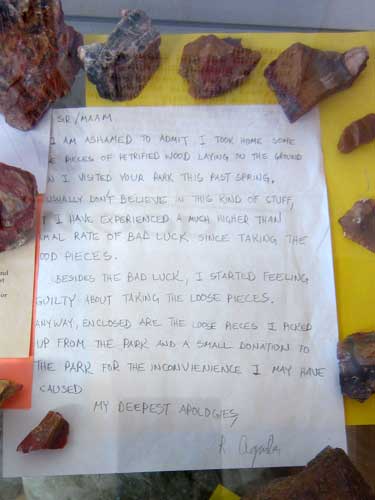 SIR/MAAM
I AM ASHAMED TO ADMIT I TOOK HOME SOME
PIECES OF PETRIFIED WOOD LAYING ON THE GROUND
I VISITED YOUR PARK THIS PAST SPRING.
USUALLY DON'T BELIEVE IN THIS KIND OF STUFF,
I HAVE EXPERIENCED A MUCH HIGHER THAN
RATE OF BAD LUCK SINCE TAKING THE
PIECES.
BESIDES THE BAD LUCK, I STARTED FEELING
GUILTY ABOUT TAKING THE LOOSE PIECES.
ANYWAY, ENCLOSED ARE THE LOOSE PIECES I PICKED
UP FROM THE PARK AND A SMALL DONATION TO
THE PARK FOR THE INCONVIENIENCE I MAY HAVE
CAUSED
MY DEEPEST APOLOGIES
R